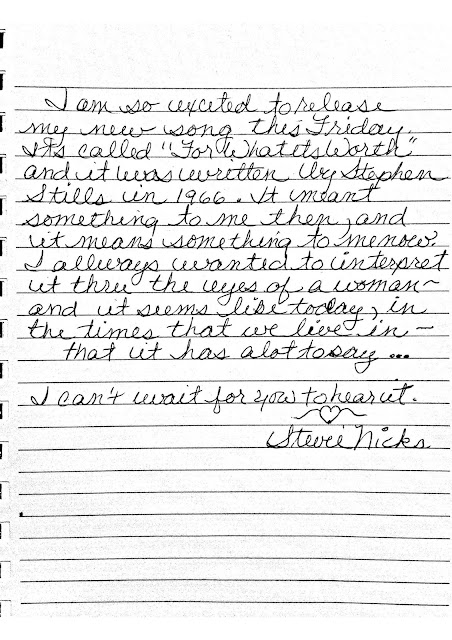 I am so excited to release
my new song this Friday.
Its called "For What Its Worth"
and it was written by Stephen
Stills in 1966. It meant
something to me then, and
it means something to me now.
I allways wanted to interpret
it thru the eyes of a woman ~
and it seems like today, in
the times that we live in ~
that it has alot to say ...
I can't wait for you to hear it.
Stevie Nicks